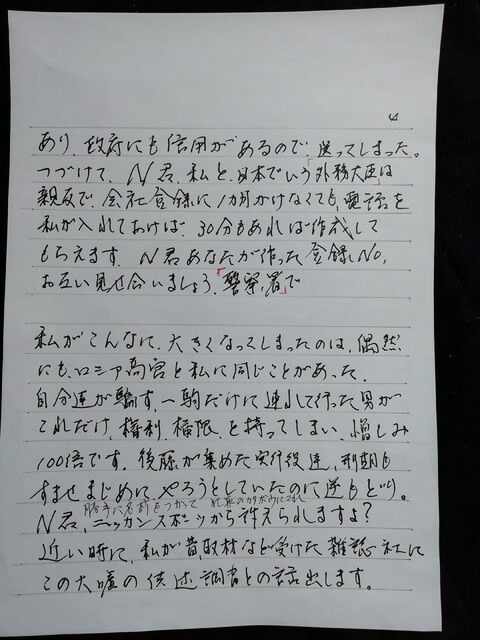 4
あり、政府にも信用があるので、送ってしまった。
つづけて、N君、私と、日本でいう外務大臣は
親友で、会社登録に1カ月かけなくても、電話を
私が入れておけば、30分もあれば作成して
もらえます。N君あなたが作った登録No,
お互い見せ合いましょう、「警察署」で
私がこんなに、大きくなってしまったのは、偶然
にも、ロシア高官と私に同じことがあった。
自分達が騙す、一駒だけに連れて行った男が
これだけ、権利、権限、を持ってしまい、憎しみ
100倍です。後藤が集めた実行役達、刑期も
すませまじめに、やろうとしていたのに逆もど叫。
勝手に名前をつかって
N君、ニッカンスポーツから訴えられますよ?
近い時に、私が昔取材など受けた雑誌社に
この大嘘の供述調書との話出します。